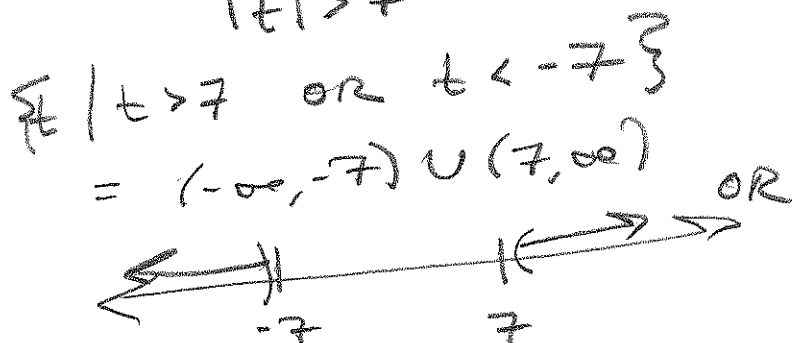 |t| > 7
{t | t > 7 OR t < -7}
= (-∞, -7) ∪ (7, ∞)
OR
-7 7